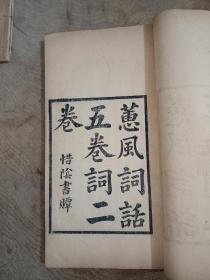 蕙風詞話
五卷詞二
卷
惜陰書臞